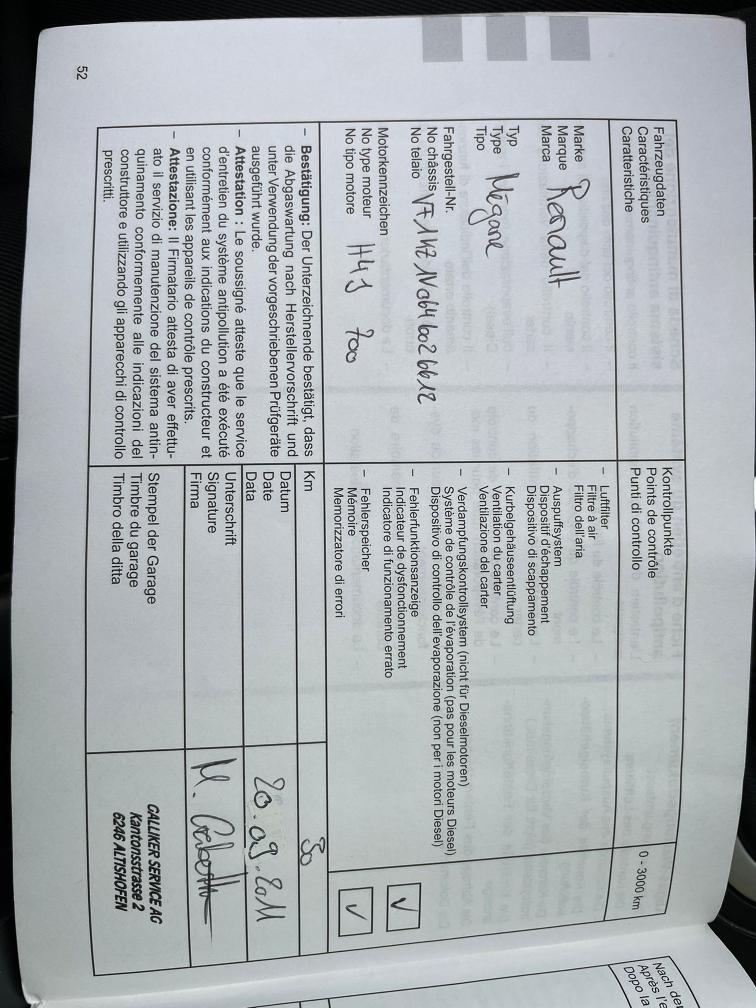 Fahrzeugdaten
Caractéristiques
Caratteristiche
Kontrollpunkte
Points de contrôle
Punti di controllo
0 - 3000 km
Marke
Marque
Marca
Renault
Typ
Type
Tipo
Mégane
Fahrgestell-Nr.
No châssis
No telaio
Motorkennzeichen
No type moteur
No tipo motore
H4J 700
– Luftfilter
Filtre à air
Filtro dell'aria
– Auspuffsystem
Dispositif d'échappement
Dispositivo di scappamento
– Kurbelgehäuseentlüftung
Ventilation du carter
Ventilazione del carter
– Verdampfungskontrollsystem (nicht für Dieselmotoren)
Système de contrôle de l'évaporation (pas pour les moteurs Diesel)
Dispositivo di controllo dell'evaporazione (non per i motori Diesel)
– Fehlerfunktionsanzeige
Indicateur de dysfonctionnement
Indicatore di funzionamento errato
✓
– Fehlerspeicher
Mémoire
Memorizzatore di errori
✓
– Bestätigung: Der Unterzeichnende bestätigt, dass
die Abgaswartung nach Herstellervorschrift und
unter Verwendung der vorgeschriebenen Prüfgeräte
ausgeführt wurde.
– Attestation : Le soussigné atteste que le service
d'entretien du système antipollution a été exécuté
conformément aux indications du constructeur et
en utilisant les appareils de contrôle prescrits.
– Attestazione: Il Firmatario attesta di aver effettu-
ato il servizio di manutenzione del sistema antin-
quinamento conformemente alle indicazioni del
construttore e utilizzando gli apparecchi di controllo
prescritti.
Km
30
Datum
Date
Data
20.09.2011
Unterschrift
Signature
Firma
Stempel der Garage
Timbre du garage
Timbro della ditta
GALLIKER SERVICE AG
Kantonsstrasse 2
6246 ALTISHOFEN
52
Nach der
Après l'e
Dopo la